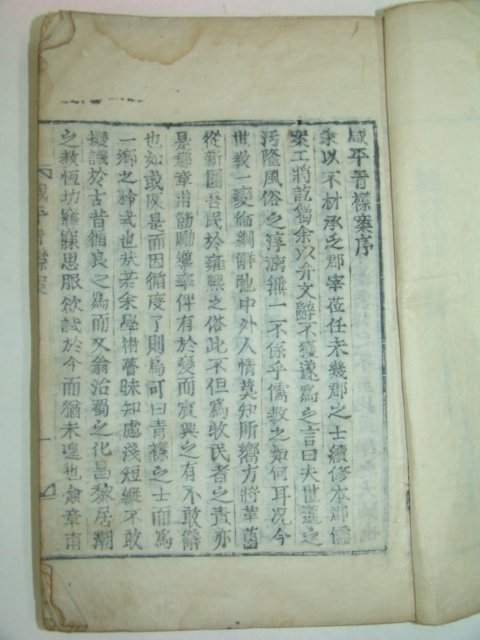 咸平靑襟案序
余以不材承乏郡宰莅任未幾郡之士續修本郡儒
案工將訖囑余以弁文辭不獲遂爲之言曰夫世道之
汚隆風俗之淳漓無一不係乎儒敎之如何耳况今
世敎一變倫綱解弛中外人情莫知所嚮方將革舊
從新圖吾民於雍熙之俗此不但爲牧民者之責亦
是郡章甫勖勵導率俾有於變而賓興之有不敢辭
也如或反是而因循度了則焉可曰靑襟之士而爲
一鄕之矜式也哉若余學術蔑昧知慮淺短縱不敢
擬議於古昔循良之爲而文翁治蜀之化昌黎居潮
之敎恆切寤寐思服欲試於今而猶未遑也僉章甫
咸平靑襟案